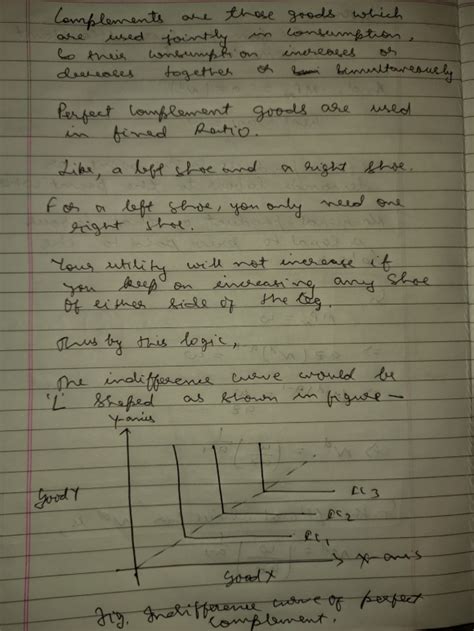 Complements are those goods which
are used jointly in consumption,
So their consumption increases or
decreases together or simultaneously
Perfect complement goods are used
in fixed Ratio.
Like, a left shoe and a right shoe.
For a left shoe, you only need one
right shoe.
Your utility will not increase if
you keep on increasing any shoe
of either side of the leg.
Thus by this logic,
The indifference curve would be
'L' shaped as shown in figure -
Y-axis
Good Y
IC3
IC2
IC1
X-axis
Good X
Fig. Indifference curve of perfect
complement.